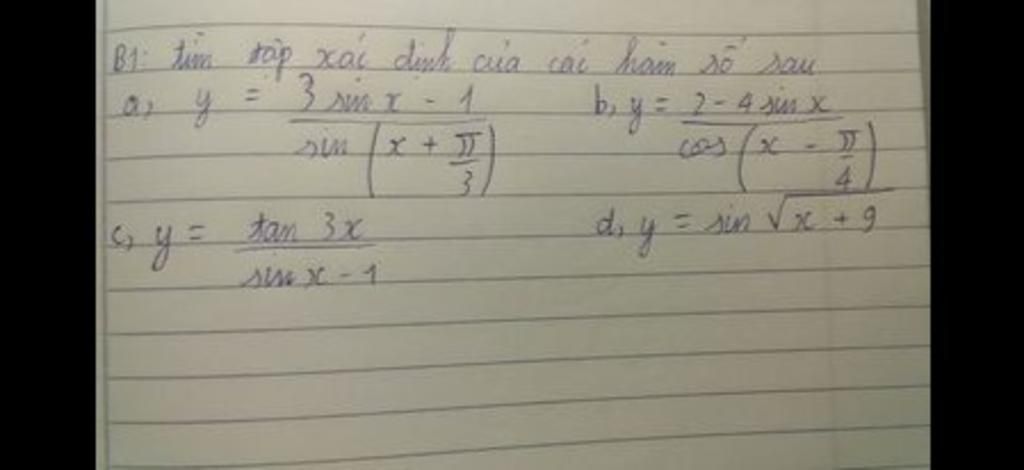 B1: tìm tập xác định của các hàm số sau
a, y = \frac{3 sin x - 1}{sin (x + \frac{π}{3})} b, y = \frac{2 - 4 sin x}{cos (x - \frac{π}{4})}
c, y = \frac{tan 3x}{sin x - 1} d, y = sin √(x + 9)